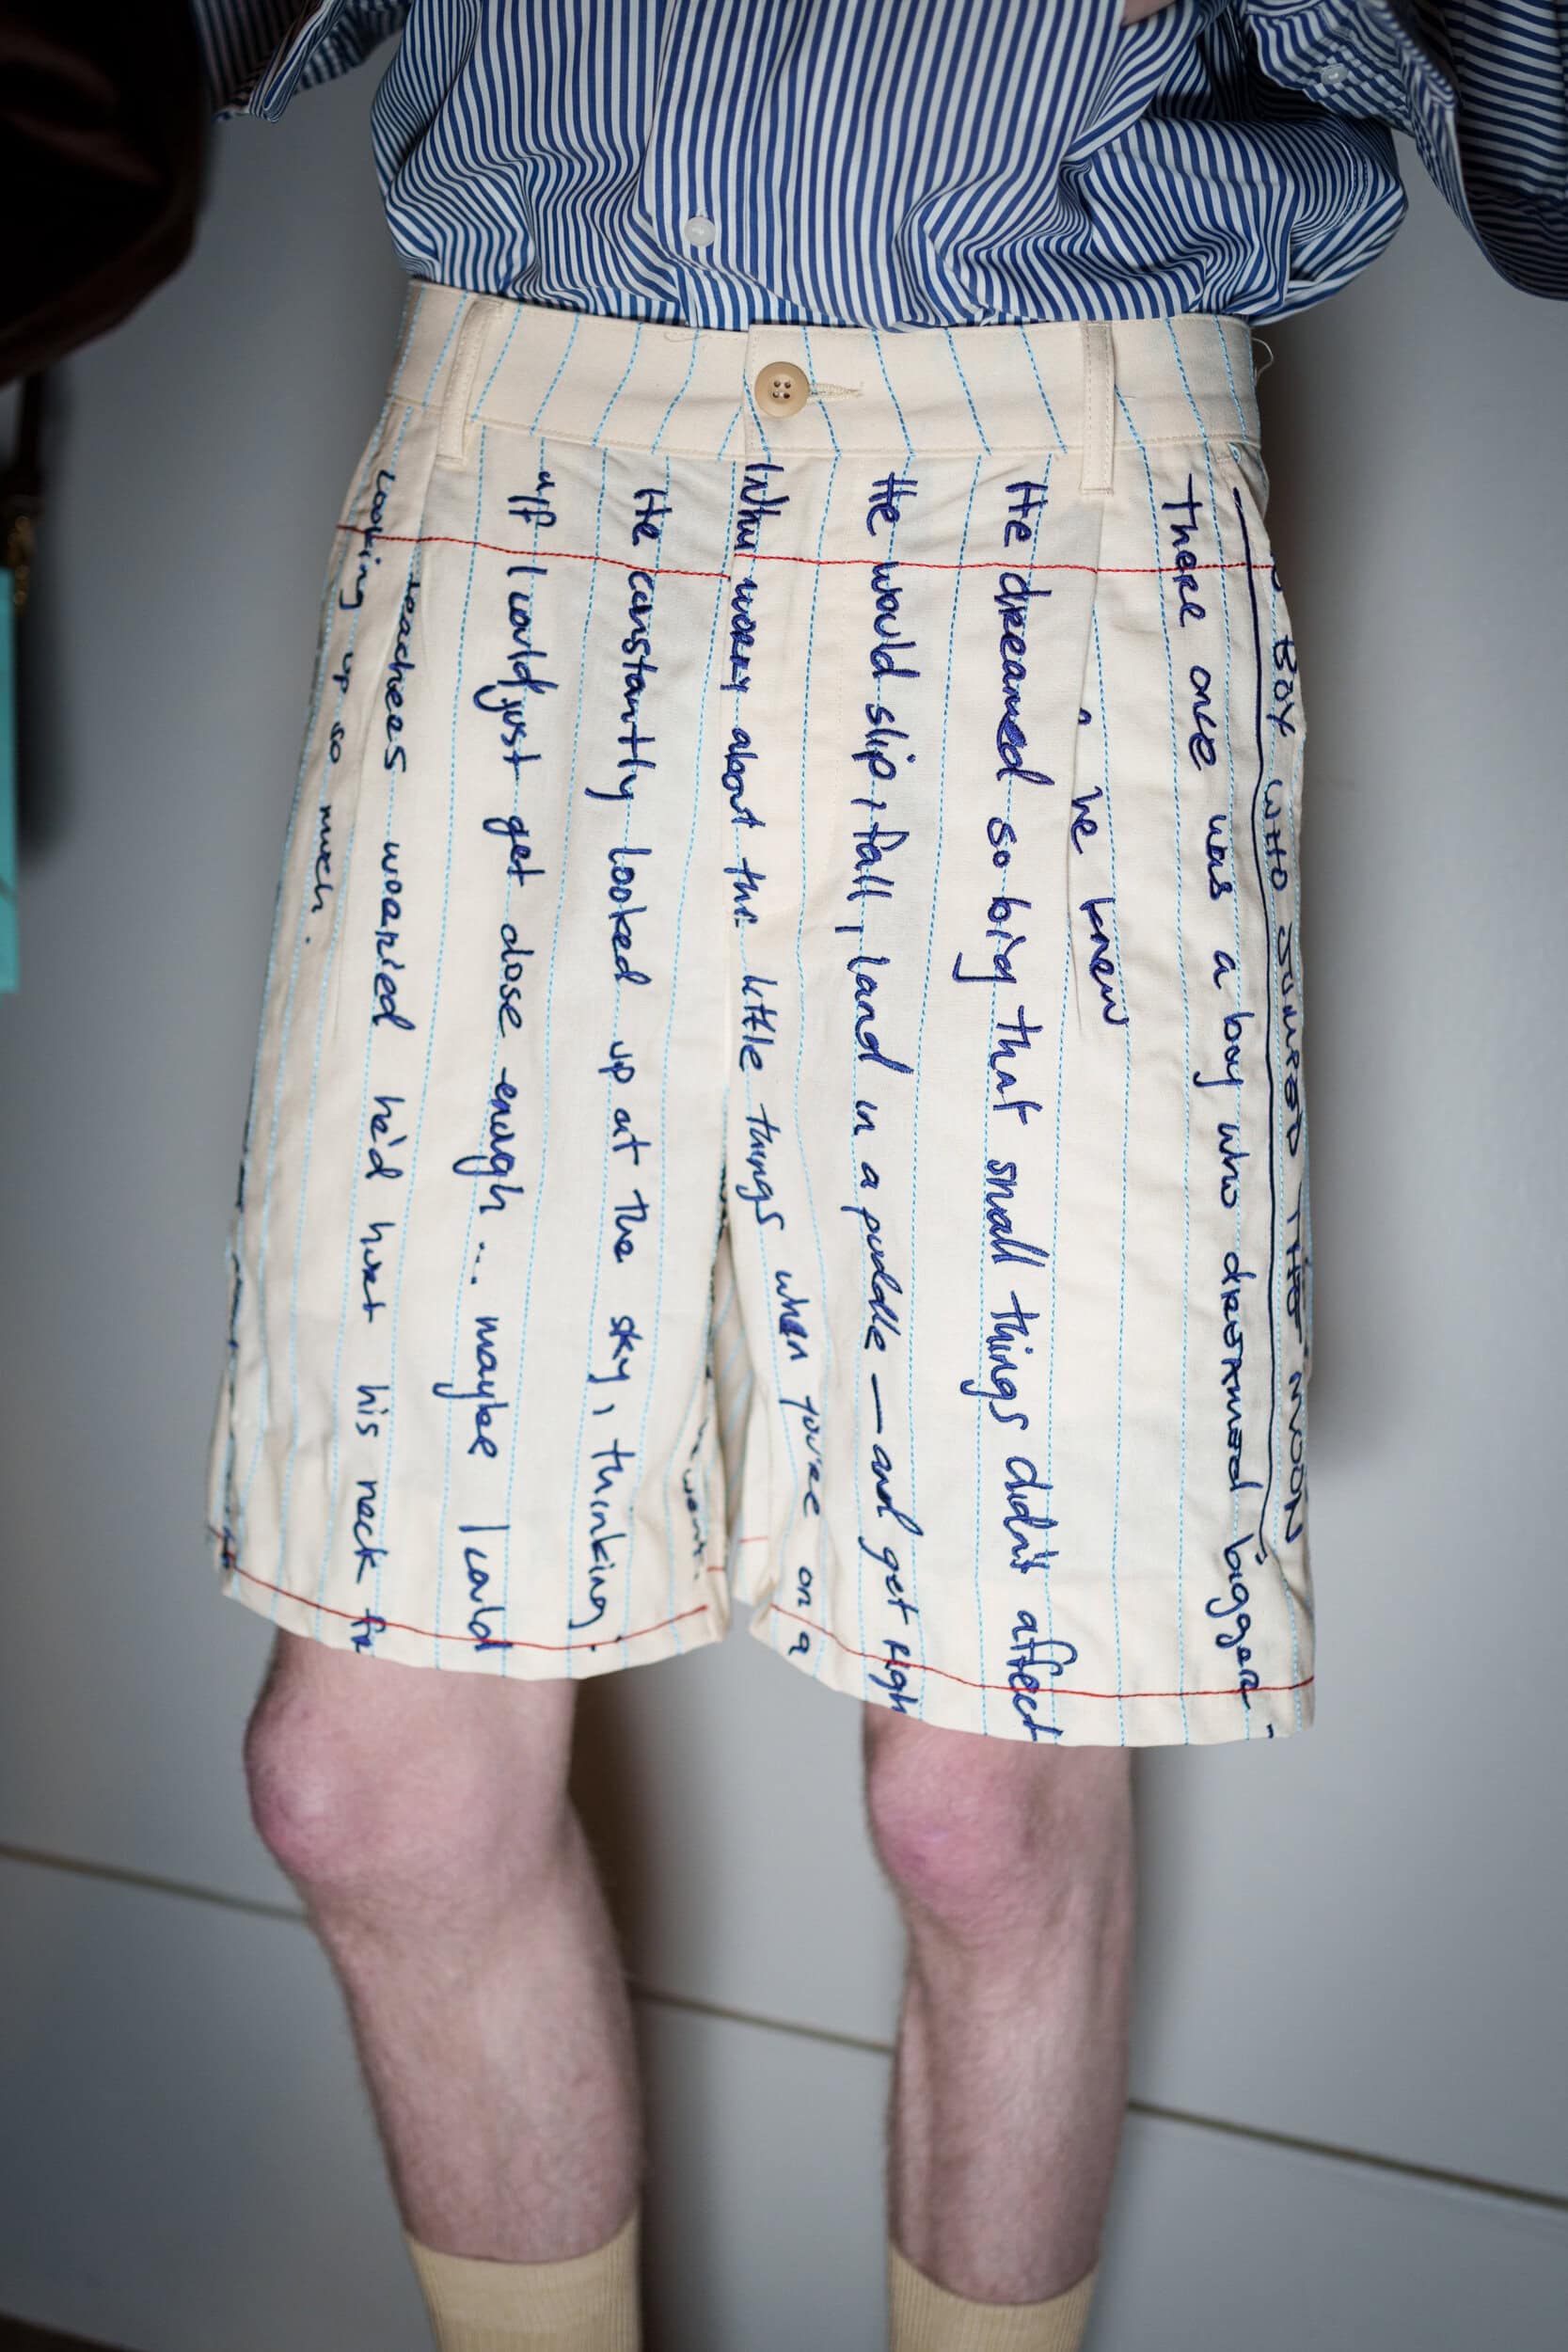 BOY WHO JUMPED THE MOON
There once was a boy who dreamed bigger
he knew
He dreamed so big that small things didn't affect
He would slip, fall, land in a puddle — and get righ
Why worry about the little things when you're on a
He constantly looked up at the sky, thinking
"If I could just get close enough... maybe I could
teachers worried he'd hurt his neck
looking up so much.